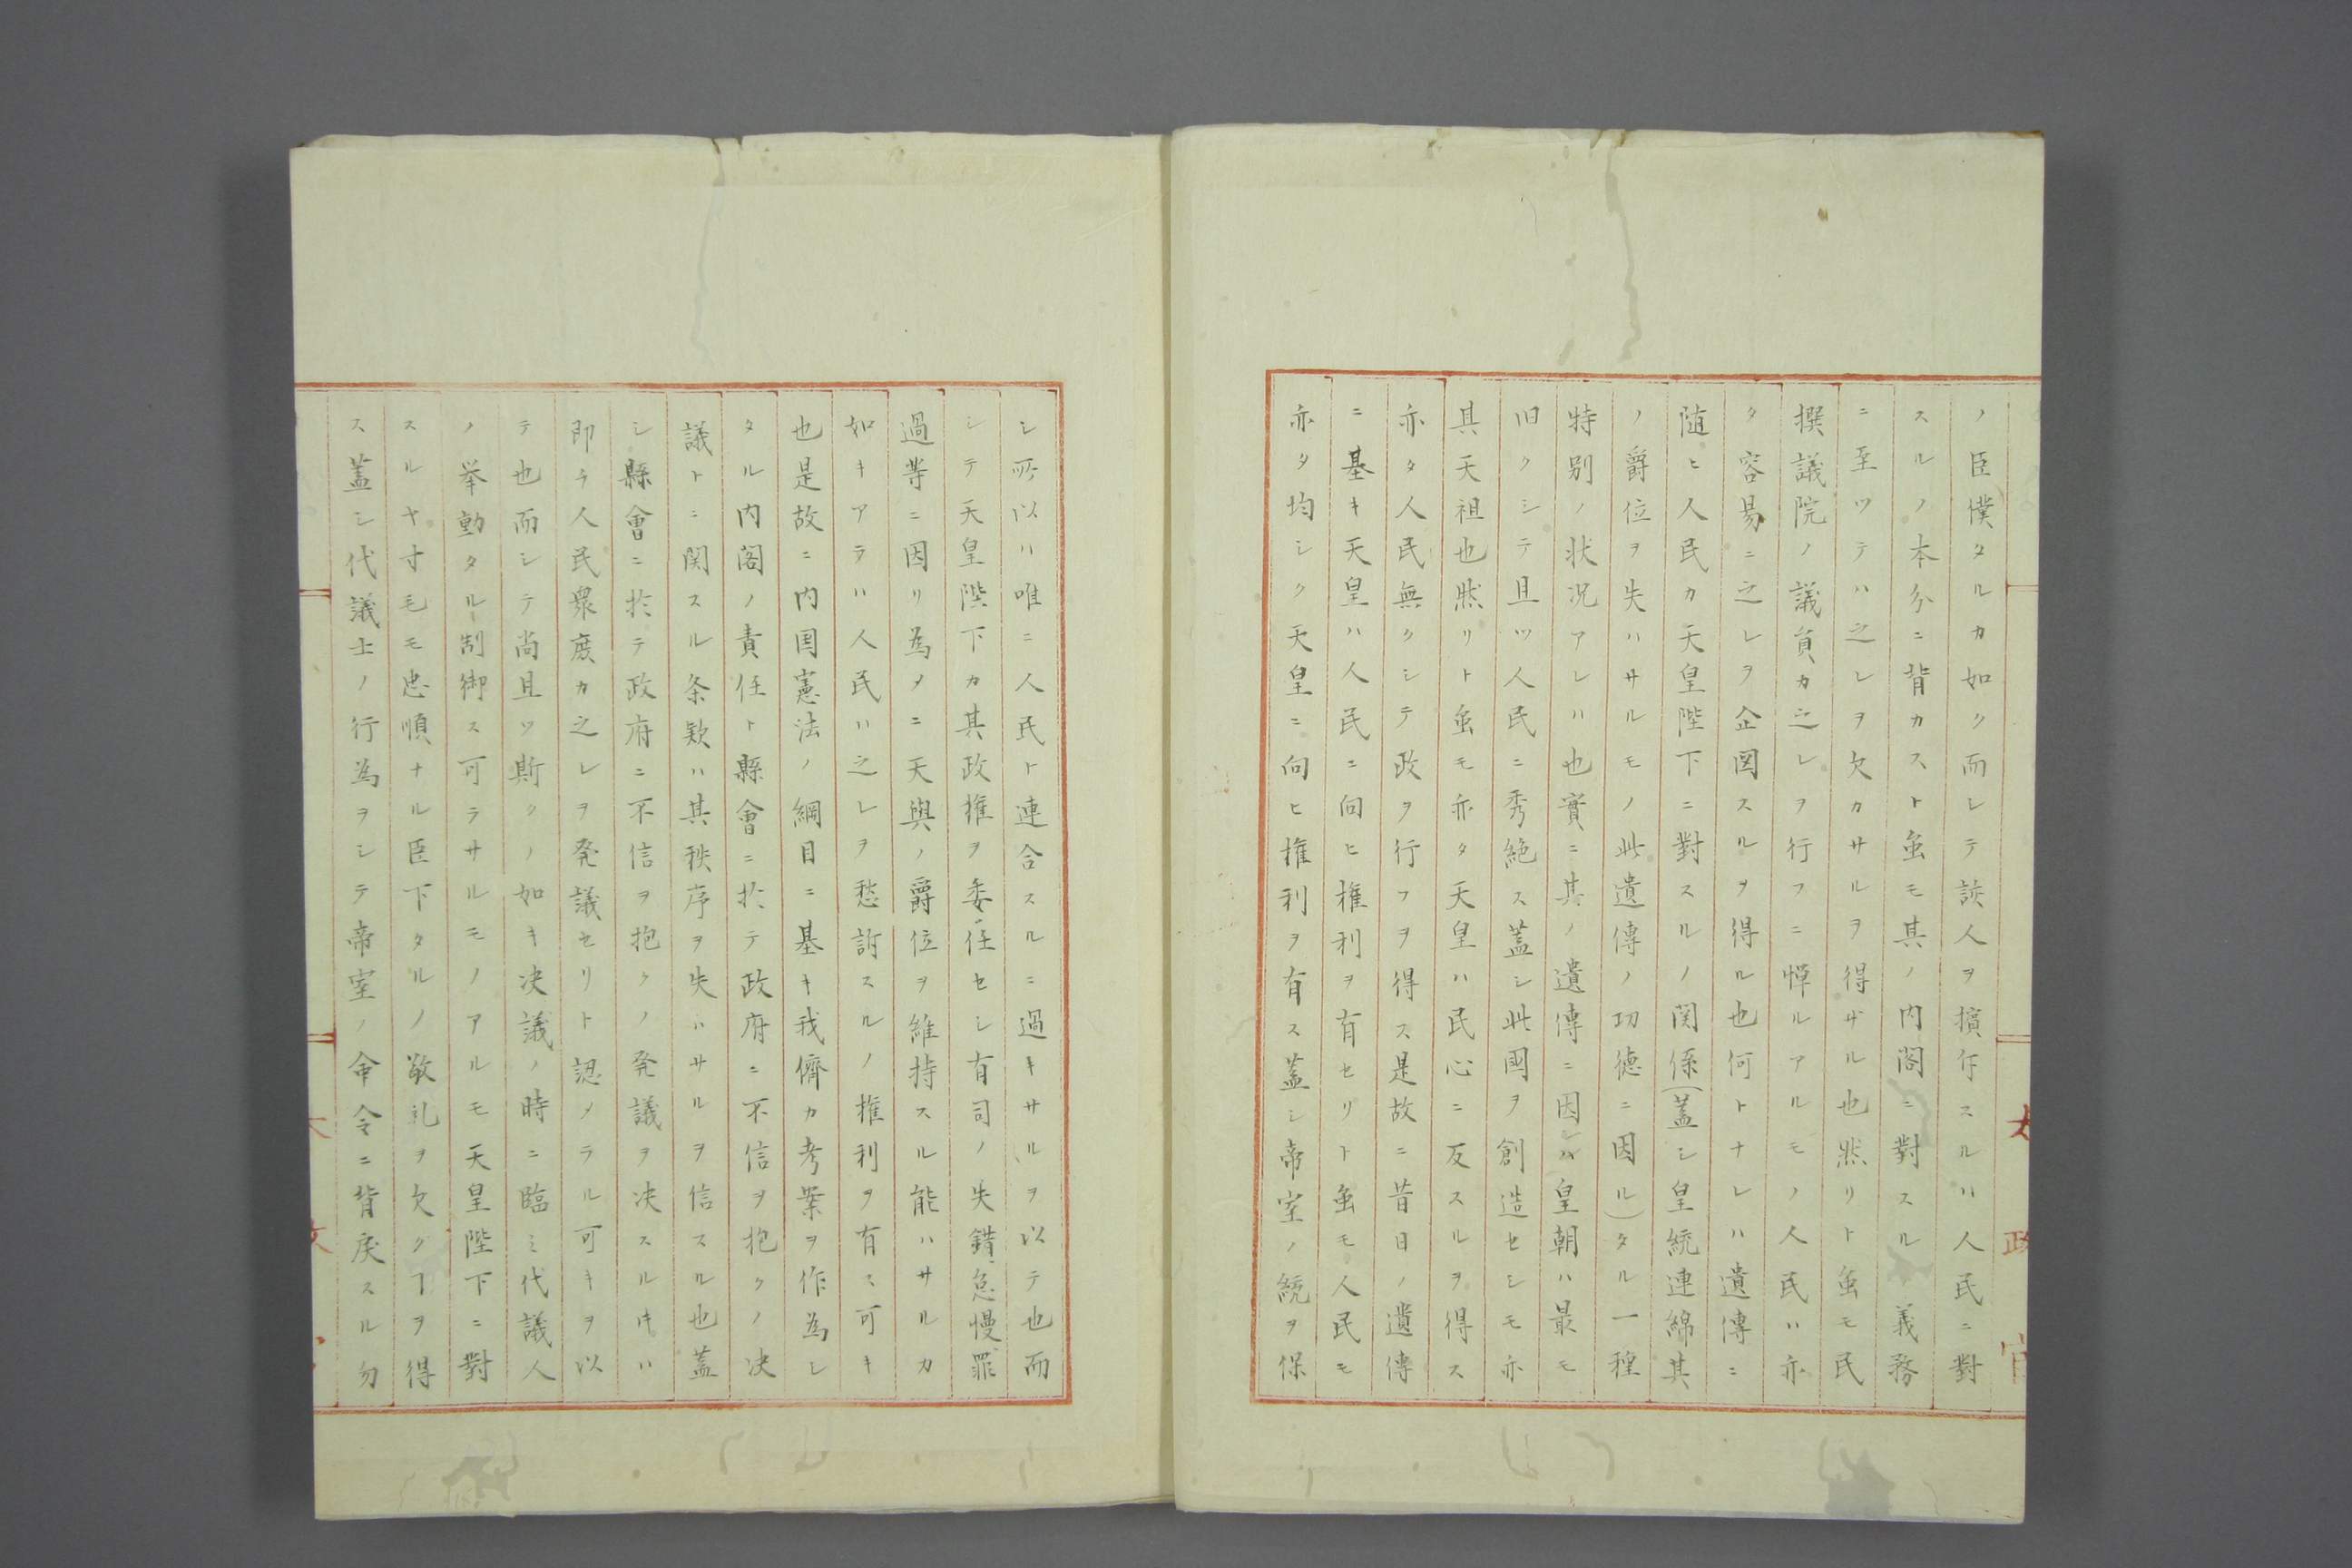 ノ臣僕タルカ如ク而シテ該人ヲ擯斥スルハ人民ニ對
スルノ本分ニ背カスト虽モ其ノ内閣ニ對スル義務
ニ至ツテハ之レヲ欠カサルヲ得ザル也然リト虽モ民
撰議院ノ議員カ之レヲ行フニ憚ルアルモノ人民ハ亦
タ容易ニ之レヲ企図スルヲ得ル也何トナレハ遺傳ニ
随ヒ人民カ天皇陛下ニ對スルノ関係(蓋シ皇統連綿其
ノ爵位ヲ失ハサルモノ此遺傳ノ功徳ニ因ル)タル一種
特別ノ状況アレハ也實ニ其ノ遺傳ニ因レハ皇朝ハ最モ
旧クシテ且ツ人民ニ秀絶ス蓋シ此國ヲ創造セシモ亦
其天祖也然リト虽モ亦タ天皇ハ民心ニ反スルヲ得ス
亦タ人民無クシテ政ヲ行フヲ得ス是故ニ昔日ノ遺傳
ニ基キ天皇ハ人民ニ向ヒ権利ヲ有セリト虽モ人民モ
亦タ均シク天皇ニ向ヒ権利ヲ有ス蓋シ帝室ノ統ヲ保
政
官
シ所以ハ唯ニ人民ト連合スルニ過キサルヲ以テ也而
シテ天皇陛下カ其政権ヲ委任セシ有司ノ失錯怠慢罪
過等ニ因リ為メニ天與ノ爵位ヲ維持スル能ハサルカ
如キアラハ人民ハ之レヲ愁訴スルノ権利ヲ有ス可キ
也是故ニ内国憲法ノ綱目ニ基キ我儕カ考案ヲ作為シ
タル内閣ノ責任ト縣會ニ於テ政府ニ不信ヲ抱クノ决
議トニ関スル条欵ハ其秩序ヲ失ハサルヲ信スル也蓋
シ縣會ニ於テ政府ニ不信ヲ抱クノ発議ヲ决スルキハ
即チ人民衆庶カ之レヲ発議セリト認メラル可キヲ以
テ也而シテ尚且ツ斯クノ如キ决議ノ時ニ臨ミ代議人
ノ挙動タル制御ス可ラサルモノアルモ天皇陛下ニ對
スルヤ寸毛モ忠順ナル臣下タルノ敬礼ヲ欠クヿヲ得
ス蓋シ代議士ノ行為ヲシテ帝室ノ命令ニ背戻スル勿